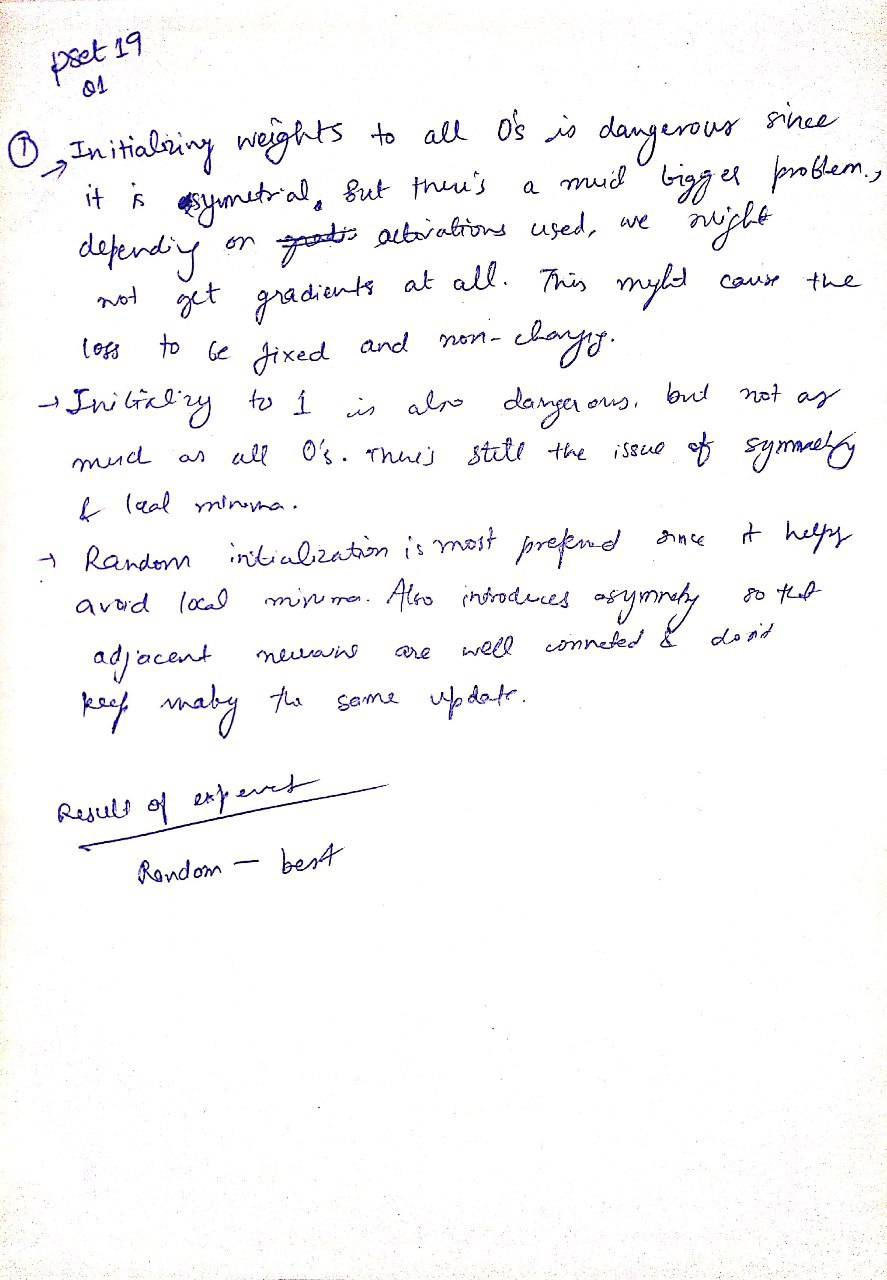 pset 19
Q1
① → Initializing weights to all 0's is dangerous since
it is symmetrial, But there's a much bigger problem.,
depending on activations used, we might
not get gradients at all. This might cause the
loss to be fixed and non-changing.
→ Initializing to 1 is also dangerous, but not as
much as all 0's. There's still the issue of symmetry
& local minima.
→ Random initialization is most preferred since it helps
avoid local minima. Also introduces asymmetry so that
adjacent neurons are well connected & don't
keep making the same update.
Result of
Random – best